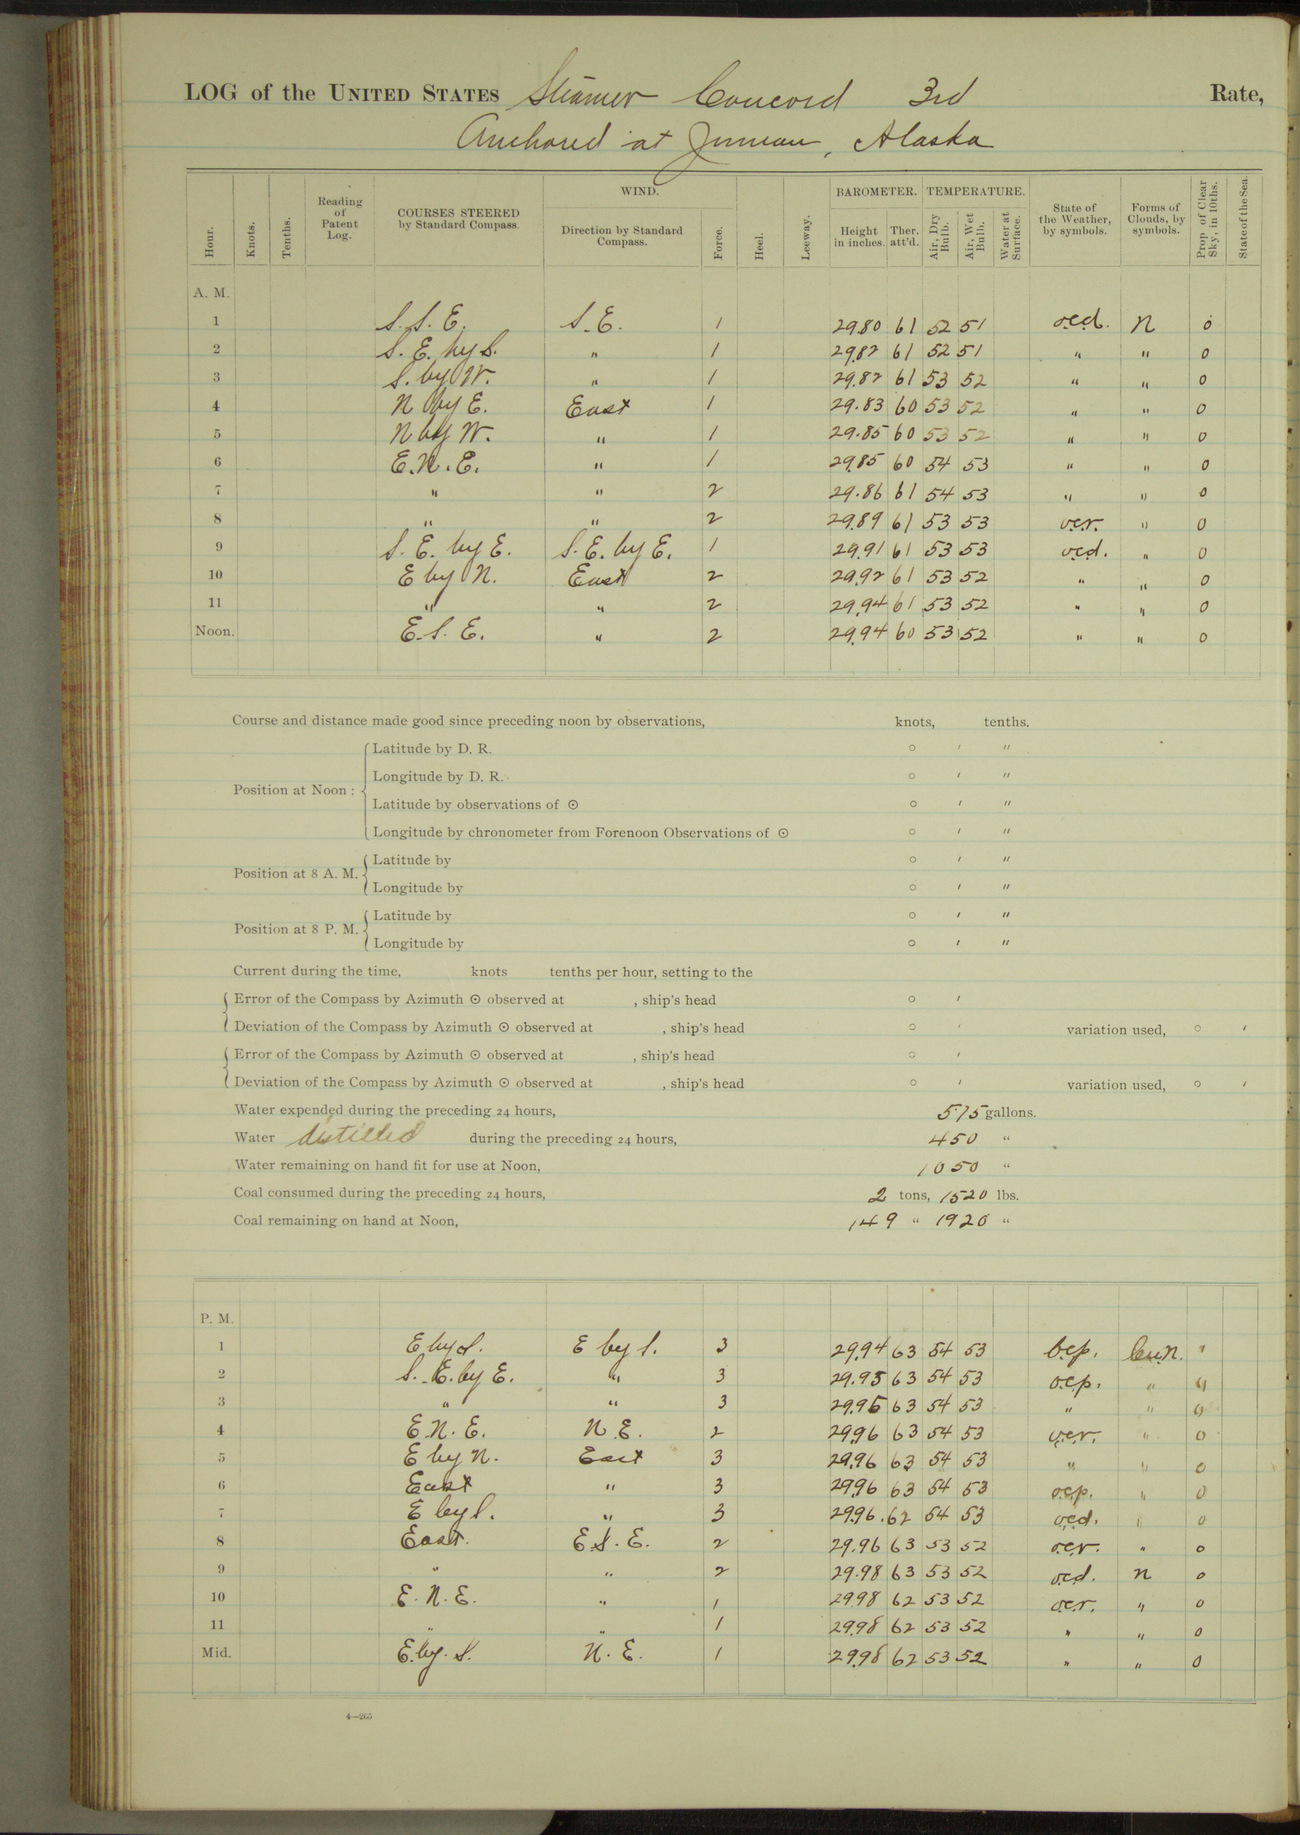 LOG of the UNITED STATES Steamer Concord 3rd Rate,
Anchored at Juneau, Alaska
Hour. Knots. Tenths. Reading of Patent Log. COURSES STEERED by Standard Compass. WIND. Direction by Standard Compass. Force. Heel. Leeway. BAROMETER. Height in inches. Ther. att'd. TEMPERATURE. Air, Dry Bulb. Air, Wet Bulb. Water at Surface. State of the Weather, by symbols. Forms of Clouds, by symbols. Prop. of Clear Sky, in 10ths. State of the Sea.
A. M.
1 S. S. E. S. E. 1 29.80 61 52 51 o.c.d. N 0
2 S. E. by S. " 1 29.82 61 52 51 " " 0
3 S. by W. " 1 29.82 61 53 52 " " 0
4 N by E. East 1 29.83 60 53 52 " " 0
5 N by W. " 1 29.85 60 53 52 " " 0
6 E. N. E. " 1 29.85 60 54 53 " " 0
7 " " 2 29.86 61 54 53 " " 0
8 " " 2 29.89 61 53 53 o.c.r. " 0
9 S. E. by E. S. E. by E. 1 29.91 61 53 53 o.c.d. " 0
10 E by N. East 2 29.92 61 53 52 " " 0
11 " " 2 29.94 61 53 52 " " 0
Noon. E. S. E. " 2 29.94 60 53 52 " " 0
Course and distance made good since preceding noon by observations, knots, tenths.
Position at Noon :
Latitude by D. R. ° ′ ″
Longitude by D. R. ° ′ ″
Latitude by observations of ☉ ° ′ ″
Longitude by chronometer from Forenoon Observations of ☉ ° ′ ″
Position at 8 A. M.
Latitude by ° ′ ″
Longitude by ° ′ ″
Position at 8 P. M.
Latitude by ° ′ ″
Longitude by ° ′ ″
Current during the time, knots tenths per hour, setting to the
Error of the Compass by Azimuth ☉ observed at , ship's head ° ′
Deviation of the Compass by Azimuth ☉ observed at , ship's head ° ′ variation used, ° ′
Error of the Compass by Azimuth ☉ observed at , ship's head ° ′
Deviation of the Compass by Azimuth ☉ observed at , ship's head ° ′ variation used, ° ′
Water expended during the preceding 24 hours, 575 gallons.
Water distilled during the preceding 24 hours, 450 "
Water remaining on hand fit for use at Noon, 1050 "
Coal consumed during the preceding 24 hours, 2 tons, 1520 lbs.
Coal remaining on hand at Noon, 149 " 1920 "
P. M.
1 E by S. E by S. 3 29.94 63 54 53 b.c.p. Cu.N.
2 S. E. by E. " 3 29.95 63 54 53 o.c.p. "
3 " " 3 29.95 63 54 53 " "
4 E. N. E. N. E. 2 29.96 63 54 53 o.c.r. " 0
5 E by N. East 3 29.96 63 54 53 " " 0
6 East " 3 29.96 63 54 53 o.c.p. " 0
7 E by S. " 3 29.96 62 54 53 o.c.d. " 0
8 East. E. S. E. 2 29.96 63 53 52 o.c.r. " 0
9 " " 2 29.98 63 53 52 o.c.d. N 0
10 E. N. E. " 1 29.98 62 53 52 o.c.r. " 0
11 " " 1 29.98 62 53 52 " " 0
Mid. E. by. S. N. E. 1 29.98 62 53 52 " " 0
4—265